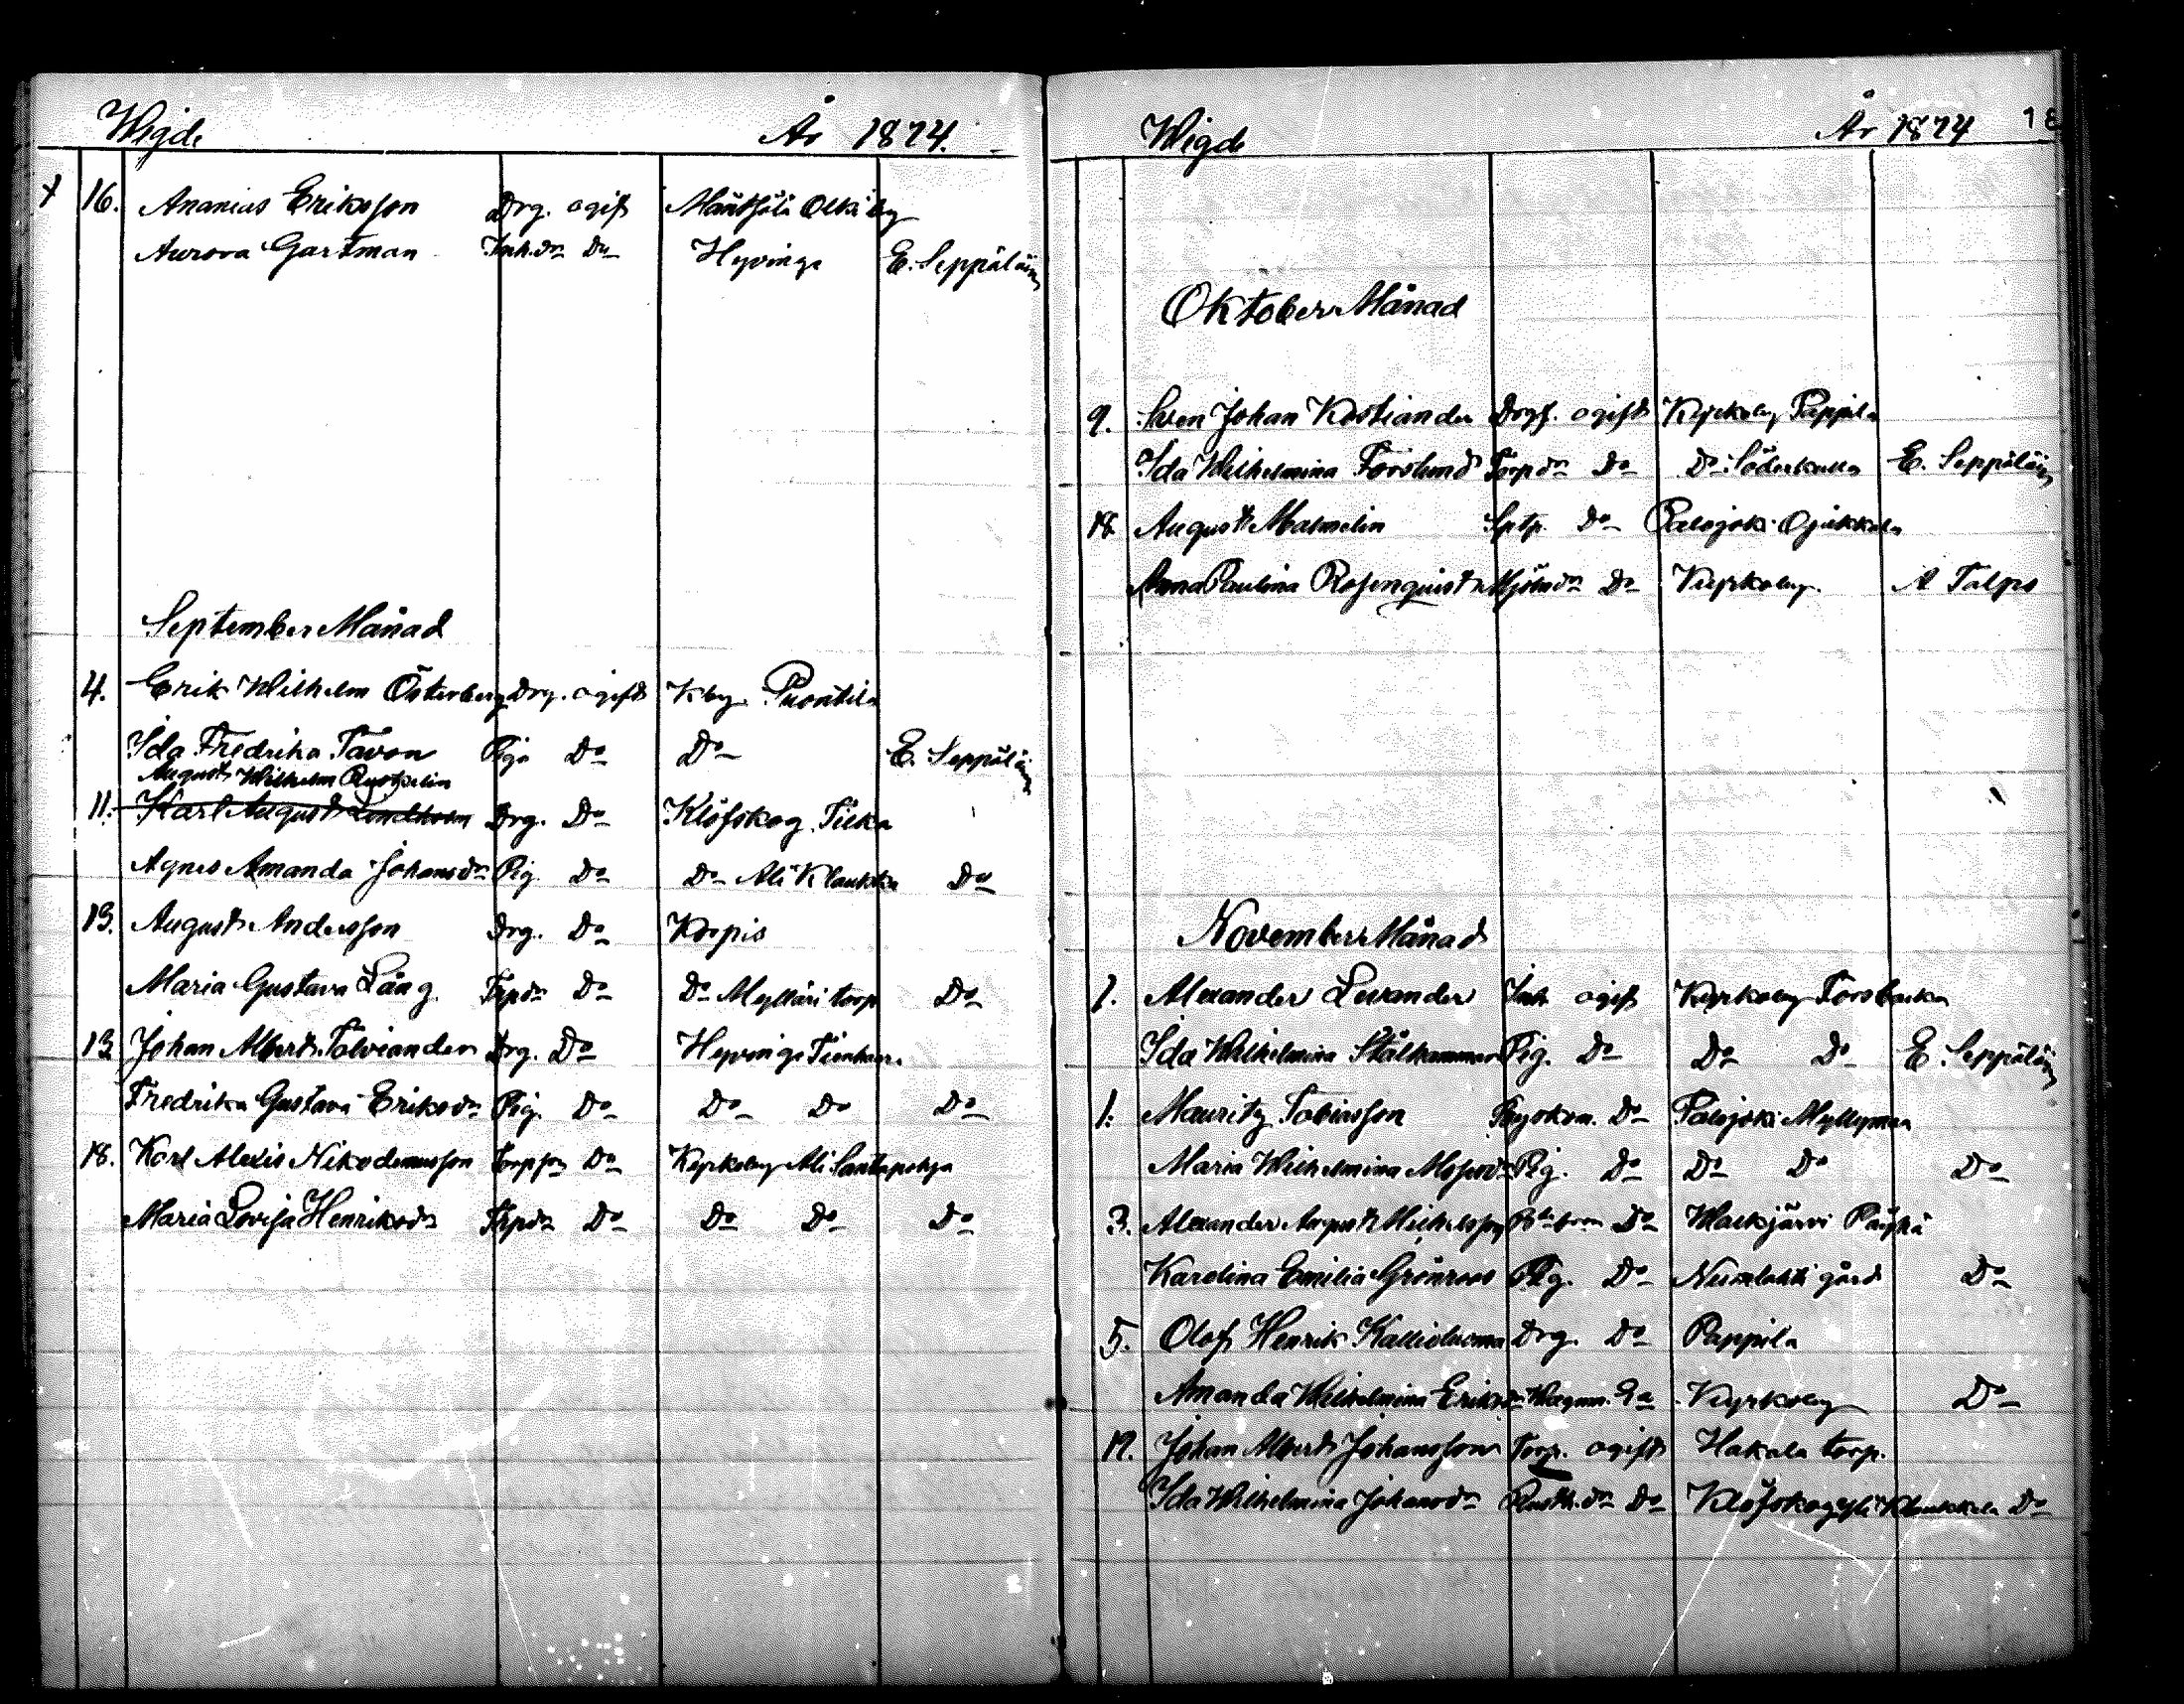 Wigde År 1874.
16. Ananias Eriksson Drg. ogift Mäntsälä Olki by
Aurora Gartman Inh.dr Do Hyvinge E. Seppäläin
September Månad
4. Erik Wilhelm Österberg Drg. ogift Kby. Puontila
Ida Fredrika Tavon Piga Do Do E. Seppäläinen
August Wilhelm
11. Karl August Lindholm Drg. Do Klöfskog Tilka
Agnes Amanda Johansdr Pig. Do Do Ali Klaukka Do
13. August Andersson Drg. Do Kropis
Maria Gustava Lång Trpdr Do Do Mylläri torp Do
13 Johan Albert Tolviander Drg. Do Hyvinge Tienhaara
Fredrika Gustava Eriksdr Pig. Do Do Do Do
18. Karl Alexis Nikodemusson Torpson Do Kyrkoby Ali Santapohja
Maria Lovisa Henriksdr Trpdr Do Do Do Do
Wigde År 1874 18
Oktober Månad
9. Sven Johan Kostiander Drgf. ogift Kyrkoby Pappila
Ida Wilhelmina Forslund Torpdr Do Do Söderkulla E. Seppäläin
18 August Malmelin Sptp. Do Palojoki Ojakkala
Anna Paulina Rosenquist Mjölndr Do Kyrkoby. A Talps
November Månad
1. Alexander Levander Inh ogift Kyrkoby Forsbacka
Ida Wilhelmina Stålhammar Pig. Do Do Do E. Seppäläin
1. Mauritz Tobiasson Do Palojoki Myllymaa
Maria Wilhelmina Mosesdr Pig. Do Do Do Do
3. Alexander August Michelsson Do Walkjärvi Päyhä
Karolina Emilia Grönroos Pig. Do Numlahti gård Do
5. Olof Henrik Kallioluoma Drg. Do Pappila
Amanda Wilhelmina Eriksdr Do Kyrkoby Do
19. Johan Albert Johansson Torp. ogift Hakala torp.
Ida Wilhelmina Johansdr Rusth.dr Do Klöfskog Yli Klaukkala Do